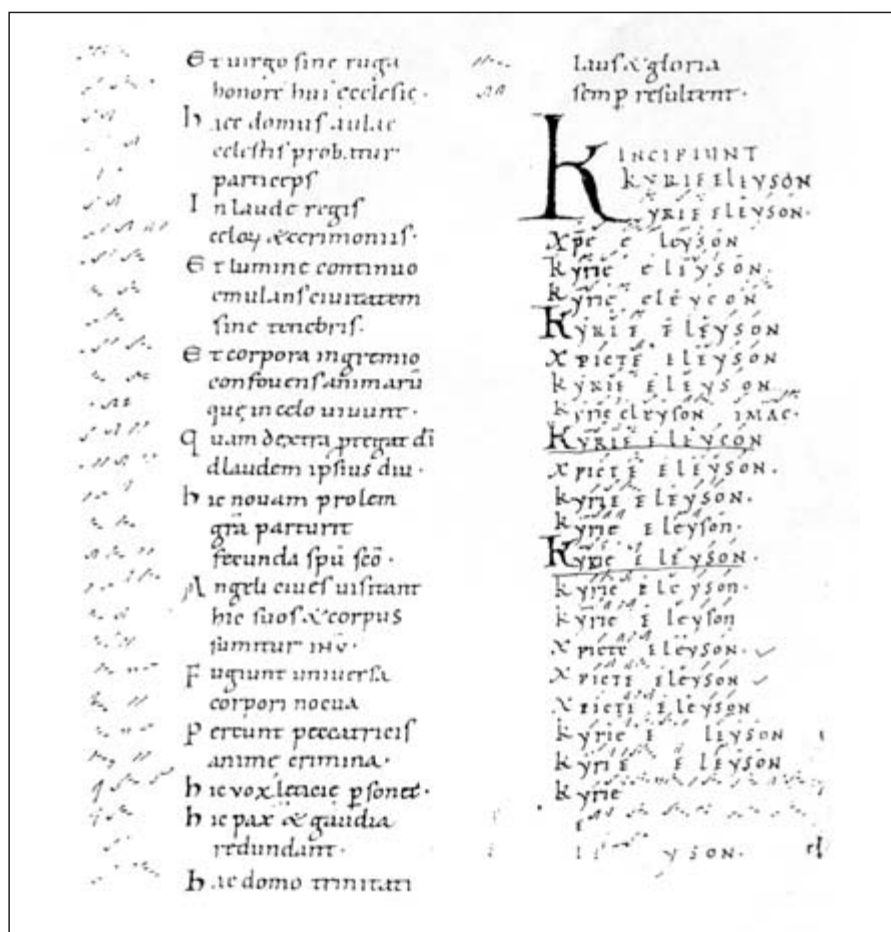 Et uirgo sine ruga
honore hui ecclesie.
hec domus aulae
celestis probatur
particeps
In laude regis
celoꝝ & cerimoniis.
Et lumine continuo
emulans ciuitatem
sine tenebris.
Et corpora in gremio
confouens animarū
quę in celo uiuunt.
Quam dextra ꝓtegat di
dlaudem ipsius diu.
hic nouam prolem
grā parturit
fecunda spū scō.
Angeli ciues uisitant
hic suos & corpus
sumitur
Fugiunt uniuersa
corpori nocua
Pereunt peccatricis
anime crimina.
hic uox letície ꝑsonet.
hic pax & gaudia
redundant.
hac domo trinitati
laus & gloria
semꝑ resultent.
INCIPIUNT
KYRIE ELEYSON
KYRIE ELEYSON.
xp̄e eleyson
kyrie eleyson.
kyrie eleycon
KYRIE ELEYSON
XPICTE ELEYSON
KYRIE ELEYSON
kyrie eleyson IMAC.
KYRIE ELEYCON
XPICTE ELEYSON.
kyrie ELEYSON.
kyrie Eleyson.
KYRIE ELEYSON.
kyrie Eleyson.
kyrie Eleyson
XPICTE ELEYSON.
XPICTE ELEYSON
XPICTE ELEYSON
kyrie E LEYSON
kyrie E LEYSON
kyrie
E
YSON. el